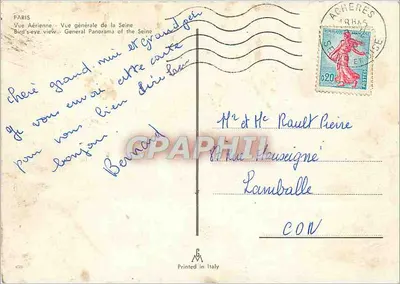 PARIS
Vue Aérienne - Vue générale de la Seine
Bird's-eye view - General Panorama of the Seine
cheré grand mère et grand père
Je vous envoie cette carte
pour vous bien dire le
bonjour
Bernard
ACHERES
0,20
Mr et Me Rault Pierre
Houseigné
Lamballe
CDN
CPAPHIL
Printed in Italy